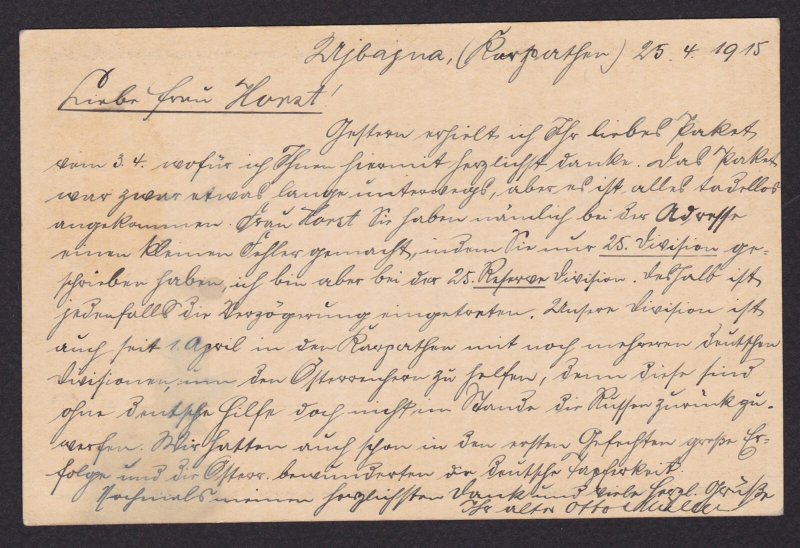 Ujbajna, (Karpathen) 25. 4. 1915
Liebe Frau Horzt!
Gestern erhielt ich Ihr liebes Paket
vom 3.4. wofür ich Ihnen hiermit herzlichst danke. Das Paket
war zwar etwas lange unterwegs, aber es ist alles tadellos
angekommen. Frau Horzt Sie haben nämlich bei der Adresse
einen kleinen Fehler gemacht, indem Sie nur 25. Division ge-
schrieben haben, ich bin aber bei der 25. Reserve Division. Deshalb ist
jedenfalls die Verzögerung eingetreten. Unsere Division ist
auch seit 1. April in den Karpathen mit noch mehreren deutschen
Divisionen, um den Österreichern zu helfen, denn diese sind
ohne deutsche Hilfe doch nicht im Stande die Russen zurück zu-
werfen. Wir hatten auch schon in den ersten Gefechten große Er-
folge und die Österr. bewunderten die deutsche Tapferkeit.
Nochmals meinen herzlichsten Dank und viele herzl. Grüße
Ihr alter Otto Müller